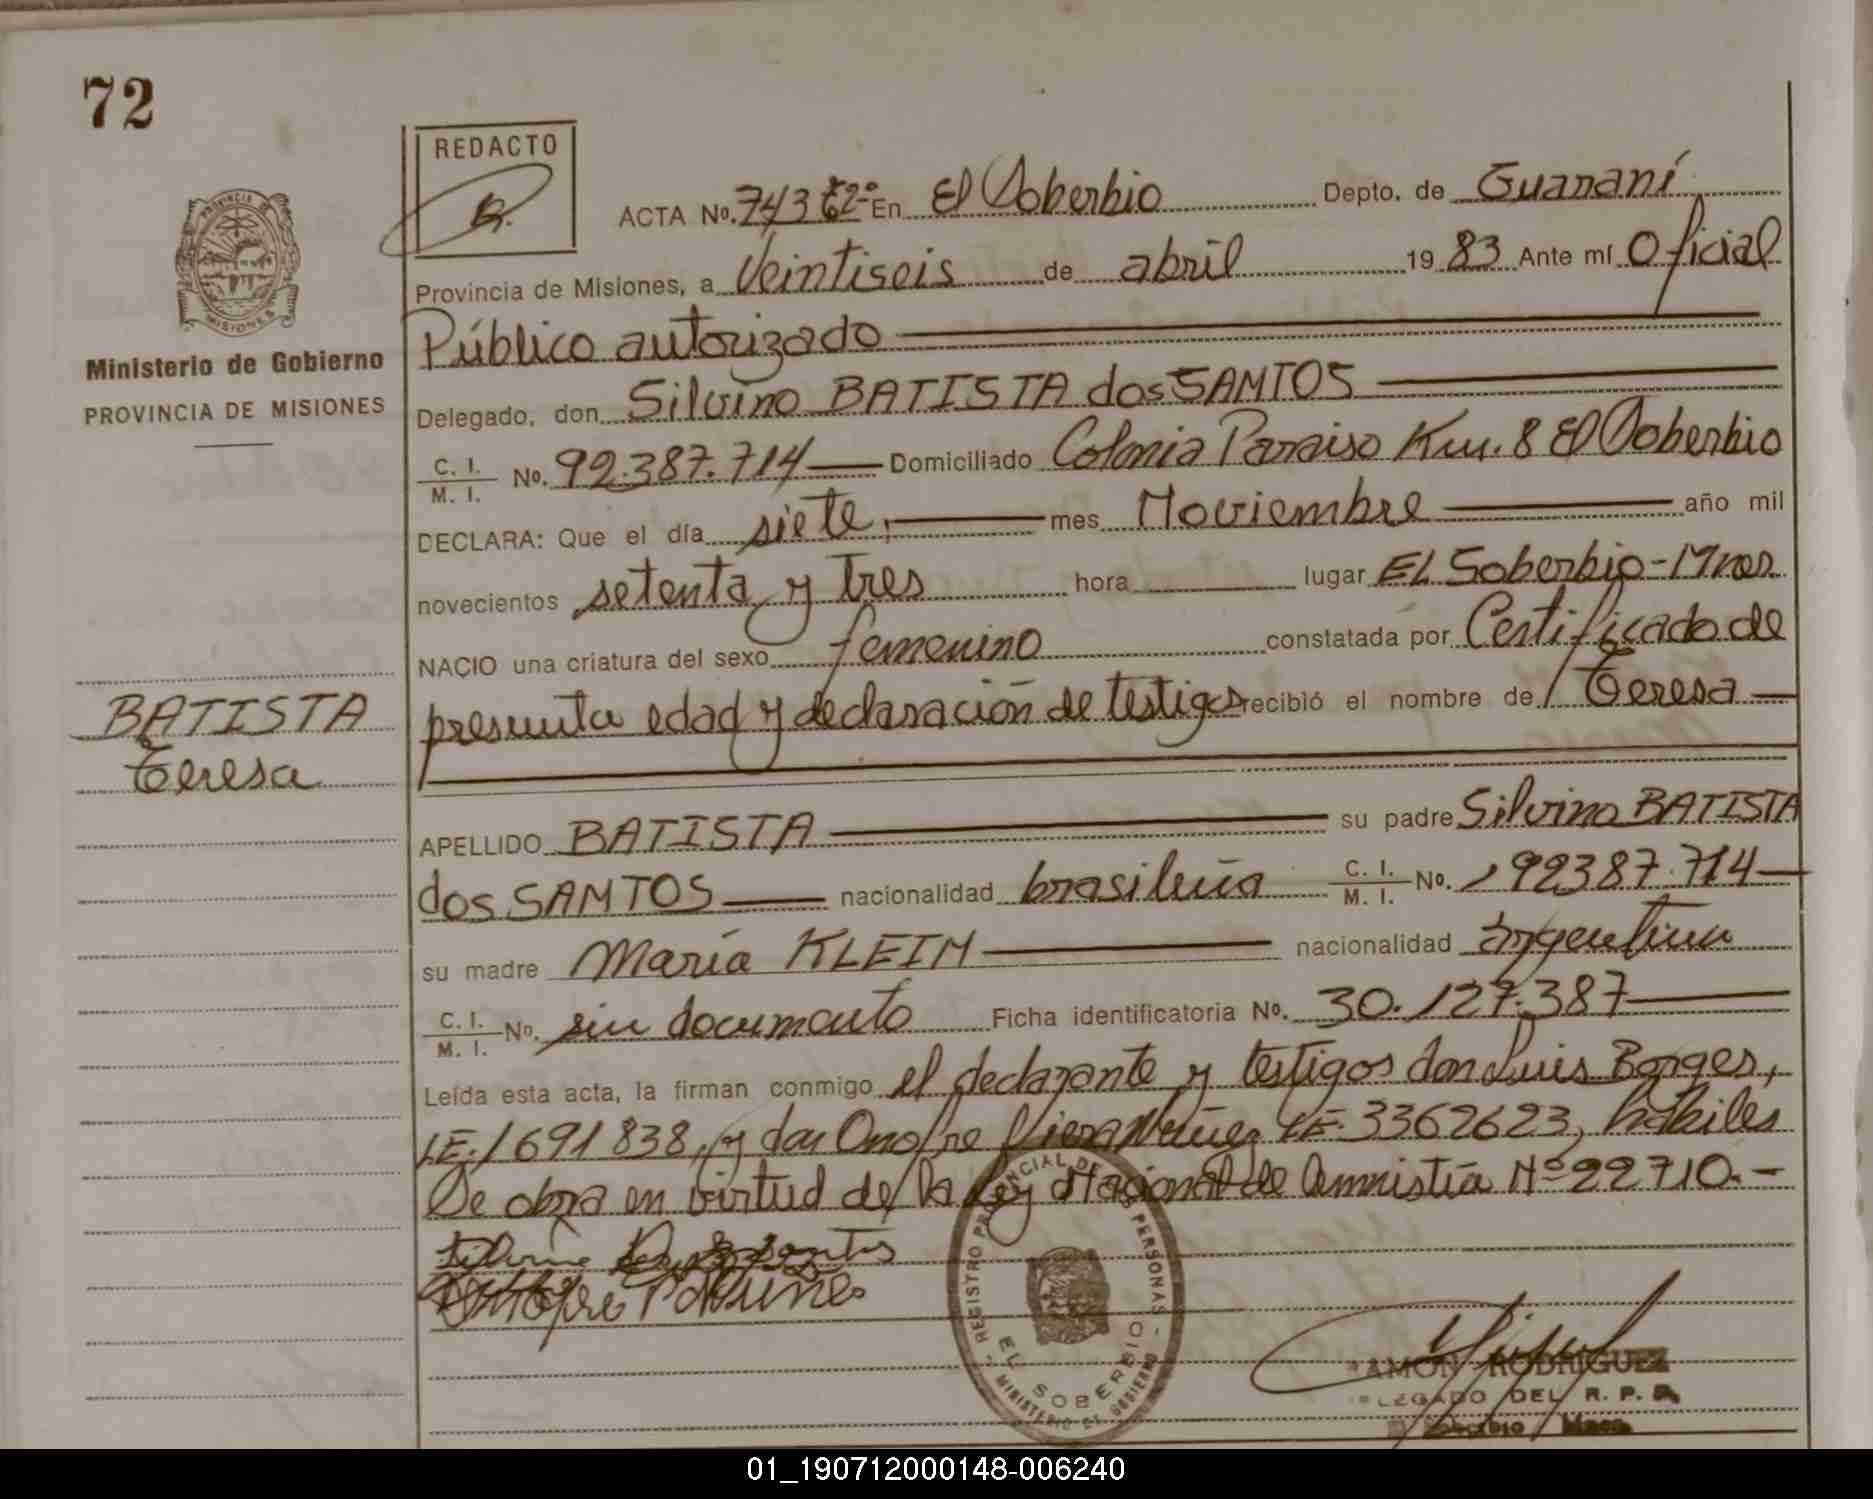 72
REDACTO
PROVINCIA DE
MISIONES
Ministerio de Gobierno
PROVINCIA DE MISIONES
ACTA No. 743 Eº En El Soberbio Depto. de Guaraní
Provincia de Misiones, a Veintiseis de abril 1983 Ante mí Oficial
Público autorizado
Delegado, don Silvino BATISTA dos SANTOS
C. I. / M. I. No. 92.387.714 Domiciliado Colonia Paraiso Km. 8 El Soberbio
DECLARA: Que el día siete, mes Noviembre año mil
novecientos setenta y tres hora lugar EL Soberbio - Mnes.
NACIO una criatura del sexo femenino constatada por Certificado de
presunta edad y declaración de testigos recibió el nombre de Teresa
BATISTA
Teresa
APELLIDO BATISTA su padre Silvino BATISTA
dos SANTOS nacionalidad brasileña C. I. / M. I. No. 92387.714
su madre María KLEIN nacionalidad argentina
C. I. / M. I. No. sin documento Ficha identificatoria No. 30.127.387
Leída esta acta, la firman conmigo el declarante y testigos don Luis Borges,
I.E. 1691838, y don Onofre Viera Nuñez I.E. 3362623, hábiles
Se obra en virtud de la Ley Nacional de Amnistía Nº 22710.-
REGISTRO PROVINCIAL DE LAS PERSONAS
EL SOBERBIO
MINISTERIO DE GOBIERNO
RAMON RODRIGUEZ
DELEGADO DEL R. P. P.
El Soberbio Mnes.
01_190712000148-006240